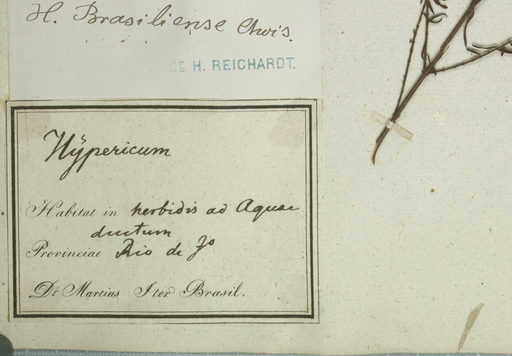 H. Brasiliense Chois.
H. REICHARDT.
Hÿpericum
Habitat in herbidis ad Aquae
ductum
Provinciae Rio de Jº
Dr Martius Iter Brasil.